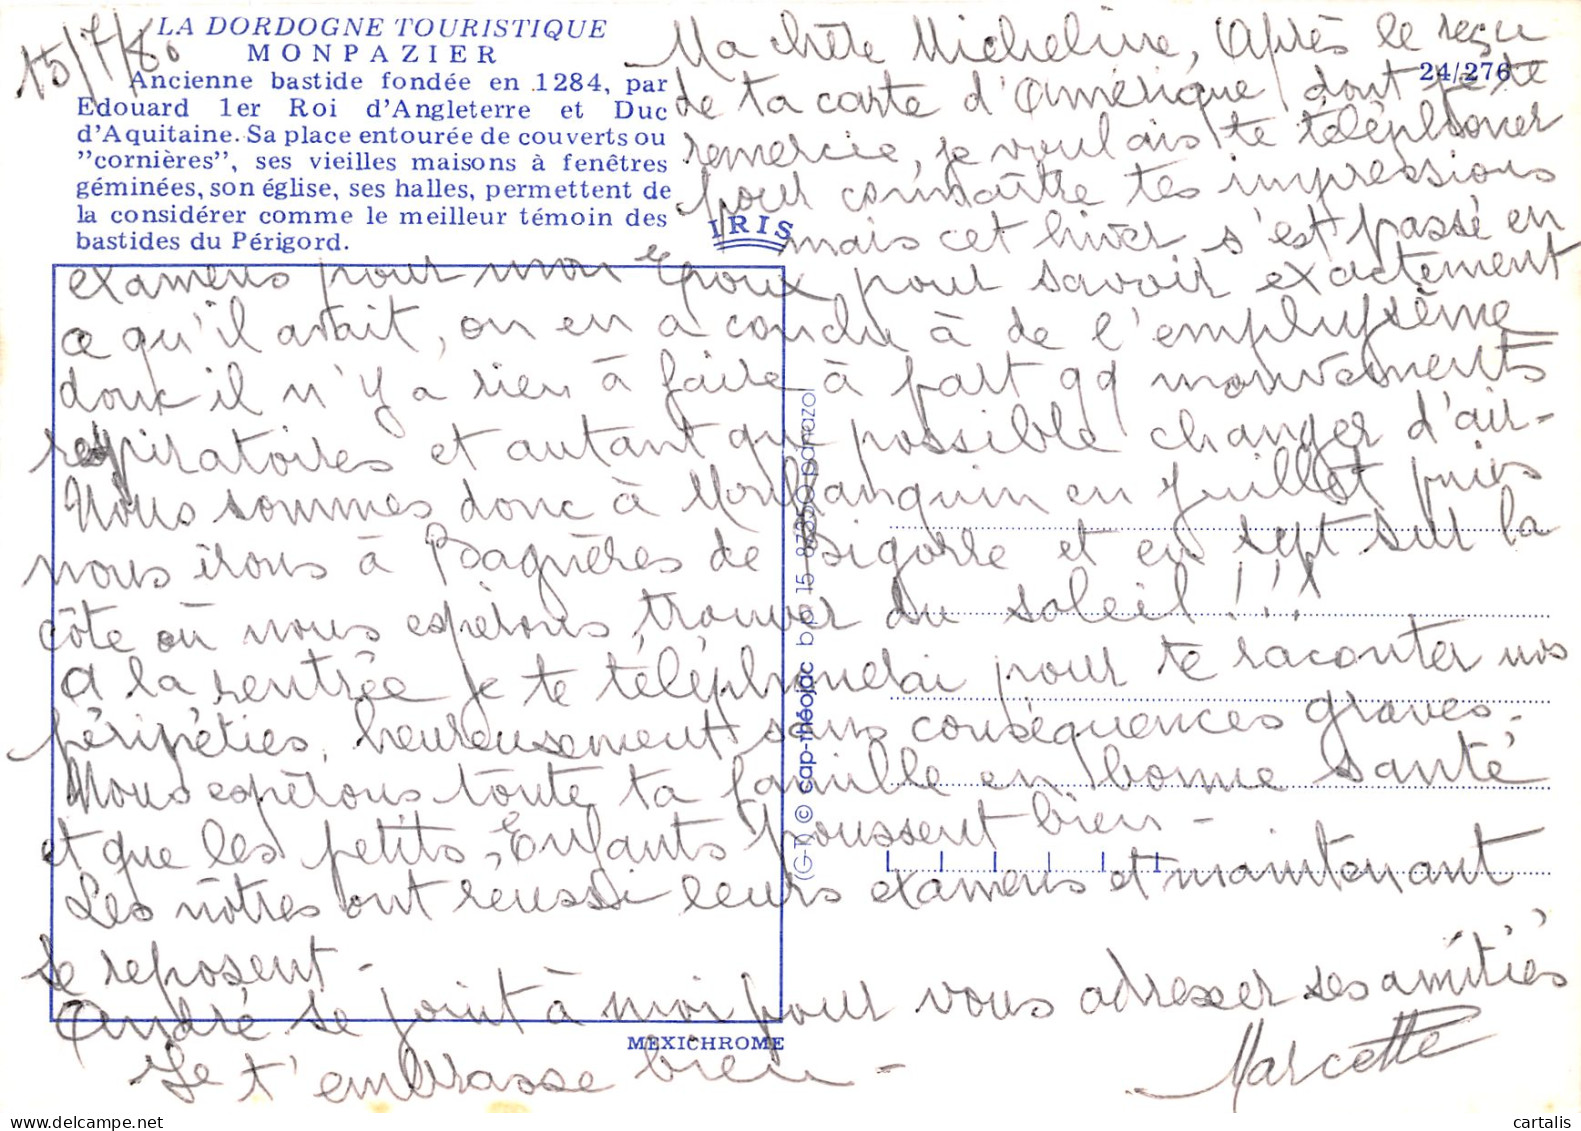 15/7/80
LA DORDOGNE TOURISTIQUE
MONPAZIER
Ancienne bastide fondée en 1284, par
Edouard 1er Roi d'Angleterre et Duc
d'Aquitaine. Sa place entourée de couverts ou
"cornières", ses vieilles maisons à fenêtres
géminées, son église, ses halles, permettent de
la considérer comme le meilleur témoin des
bastides du Périgord.
24/276
IRIS
Ma chère Micheline, Après le reçu
de ta carte d'Amérique dont je te
remercie, je voulais te téléphoner
pour connaître tes impressions
mais cet hiver s'est passé en
examens pour mon Epoux pour savoir exactement
ce qu'il avait, on en a conclu à de l'emphysème
donc il n'y a rien à faire à part qq mouvements
respiratoires et autant que possible changer d'air -
Nous sommes donc à Monflanquin en Juillet puis
nous irons à Bagnères de Bigorre et en sept sur la
côte où nous espérons trouver du soleil !!!
A la rentrée je te téléphonerai pour te raconter nos
péripéties, heureusement sans conséquences graves -
Nous espérons toute ta famille en bonne santé
et que les petits Enfants poussent bien -
Les nôtres ont réussi leurs examens et maintenant
se reposent -
André se joint à moi pour vous adresser ses amitiés
Je t'embrasse bien -
Marcette
(G-T) © cap-théojac b.p. 15 87350 panazol
MEXICHROME
cartalis